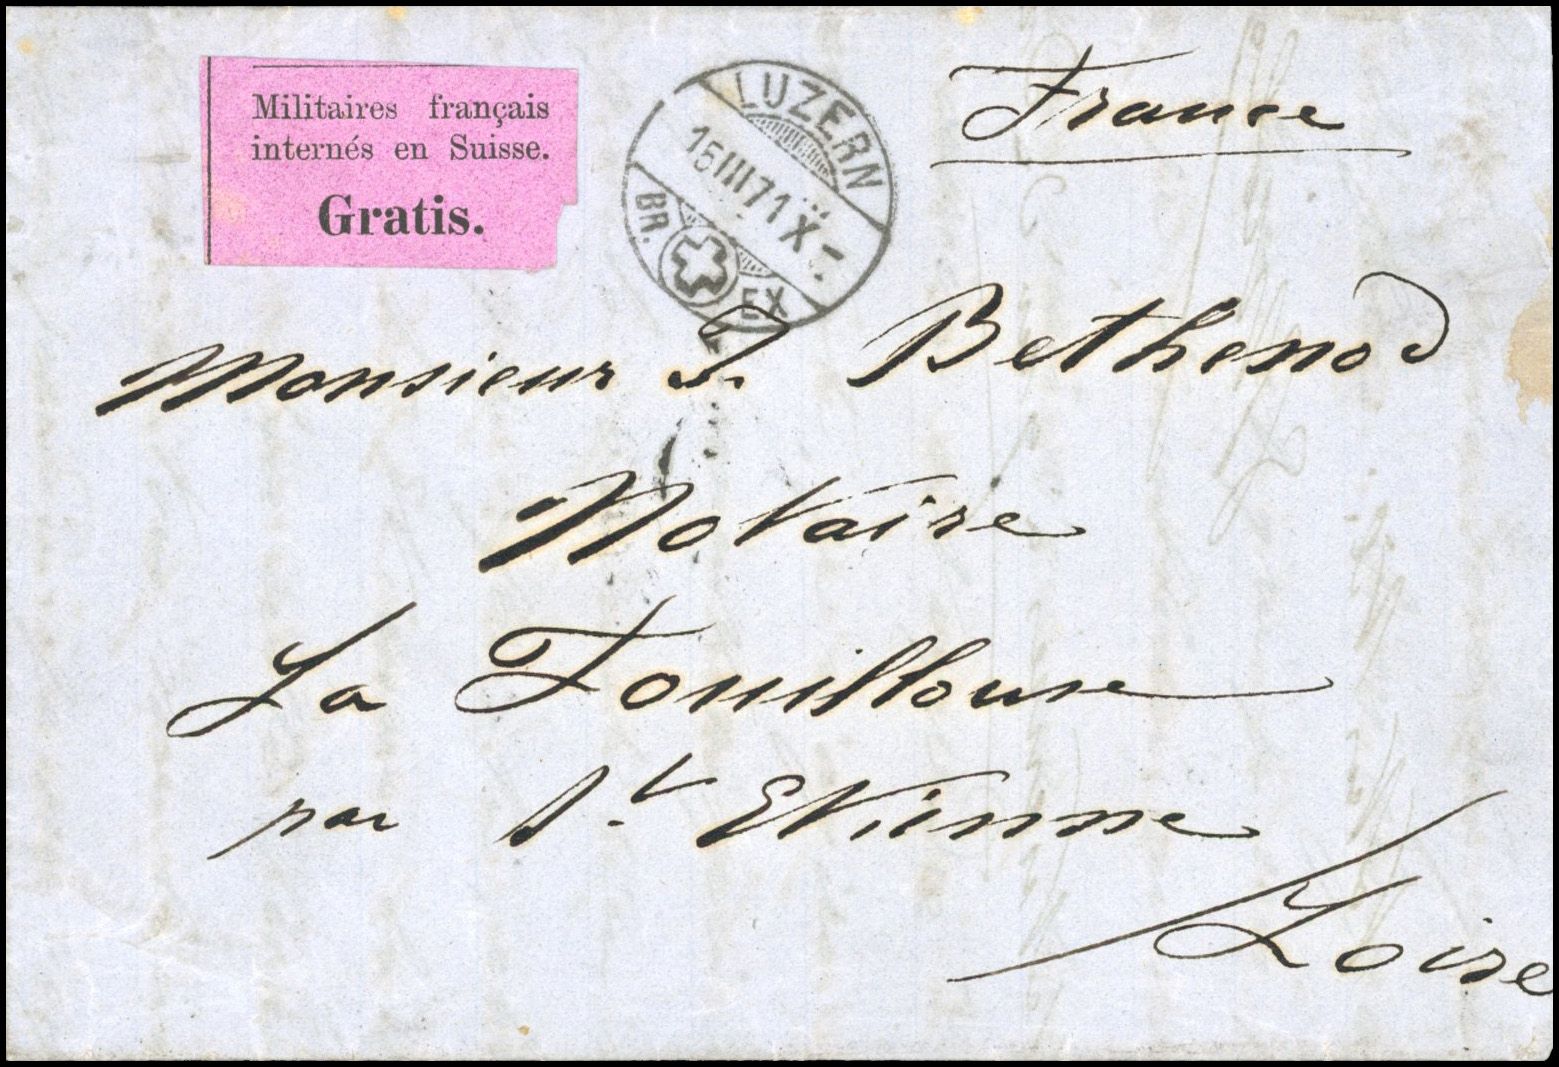 Militaires français
internés en Suisse.
Gratis.
LUZERN
15 III 71 X
BR. EX
France
Monsieur J. Bethenod
Notaire
La Fouillouse
par St Etienne
Loire